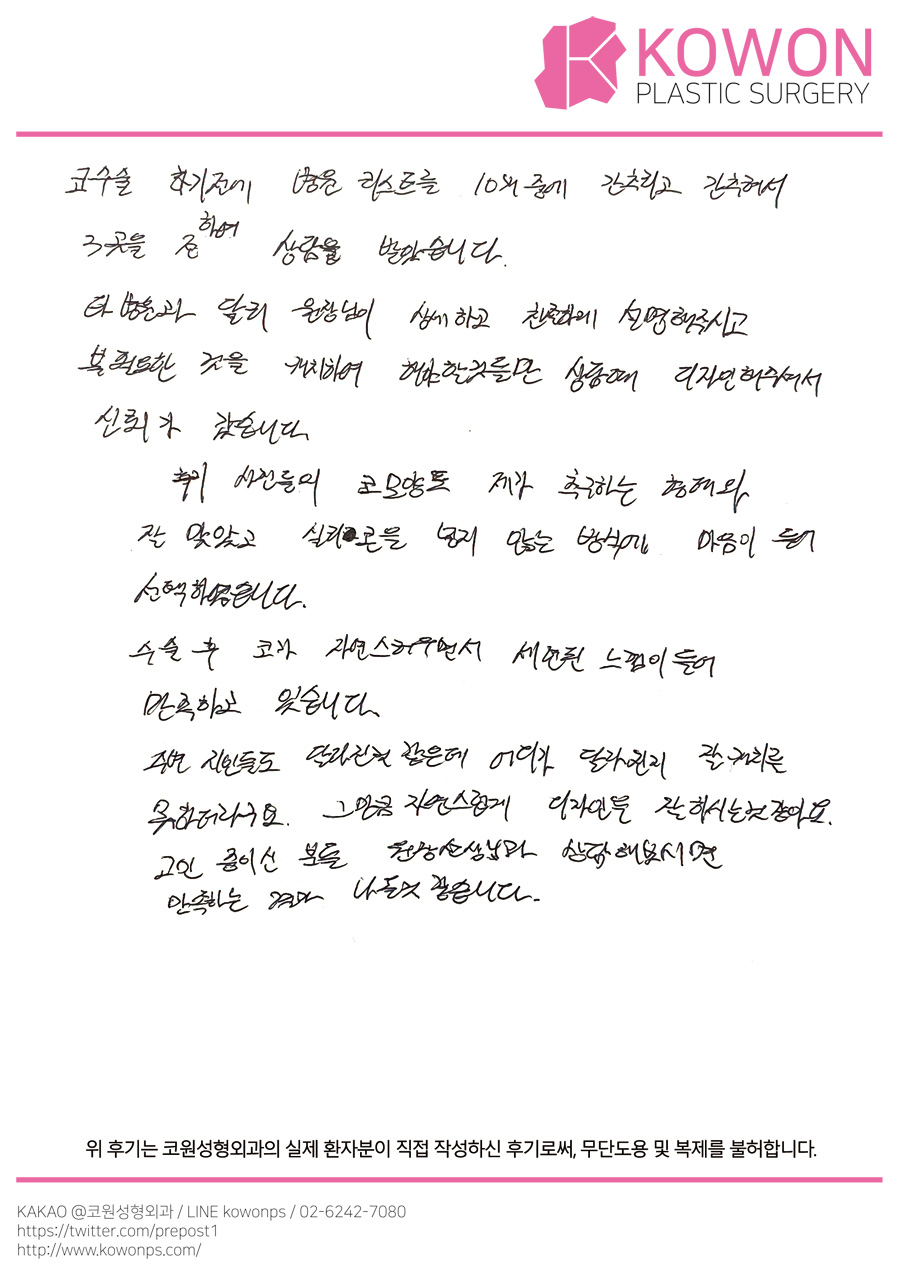 KOWON
PLASTIC SURGERY
코수술 하기전에 병원 리스트를 10위 중에 간추리고 간추려서
3곳을 정하여 상담을 받았습니다.
타 병원과 달리 원장님이 상세하고 친절하게 설명해주시고
불필요한 것을 캐치하여 필요한것들만 상담때 디자인해주셔서
신뢰가 갔습니다.
후기 사진들의 코모양도 제가 추구하는 형태와
잘 맞았고 실리콘을 넣지 않는 방식에 마음이 들어
선택하였습니다.
수술 후 코가 자연스러우면서 세련된 느낌이 들어
만족하고 있습니다.
주변 지인들도 달라진것 같은데 어디가 달라졌는지 잘 캐치를
못하더라구요. 그만큼 자연스럽게 디자인을 잘 하시는것 같아요.
고민 중이신 분들 원장선생님과 상담해보시면
만족하는 결과 나올것 같습니다.
위 후기는 코원성형외과의 실제 환자분이 직접 작성하신 후기로써, 무단도용 및 복제를 불허합니다.
KAKAO @코원성형외과 / LINE kowonps / 02-6242-7080
https://twitter.com/prepost1
http://www.kowonps.com/